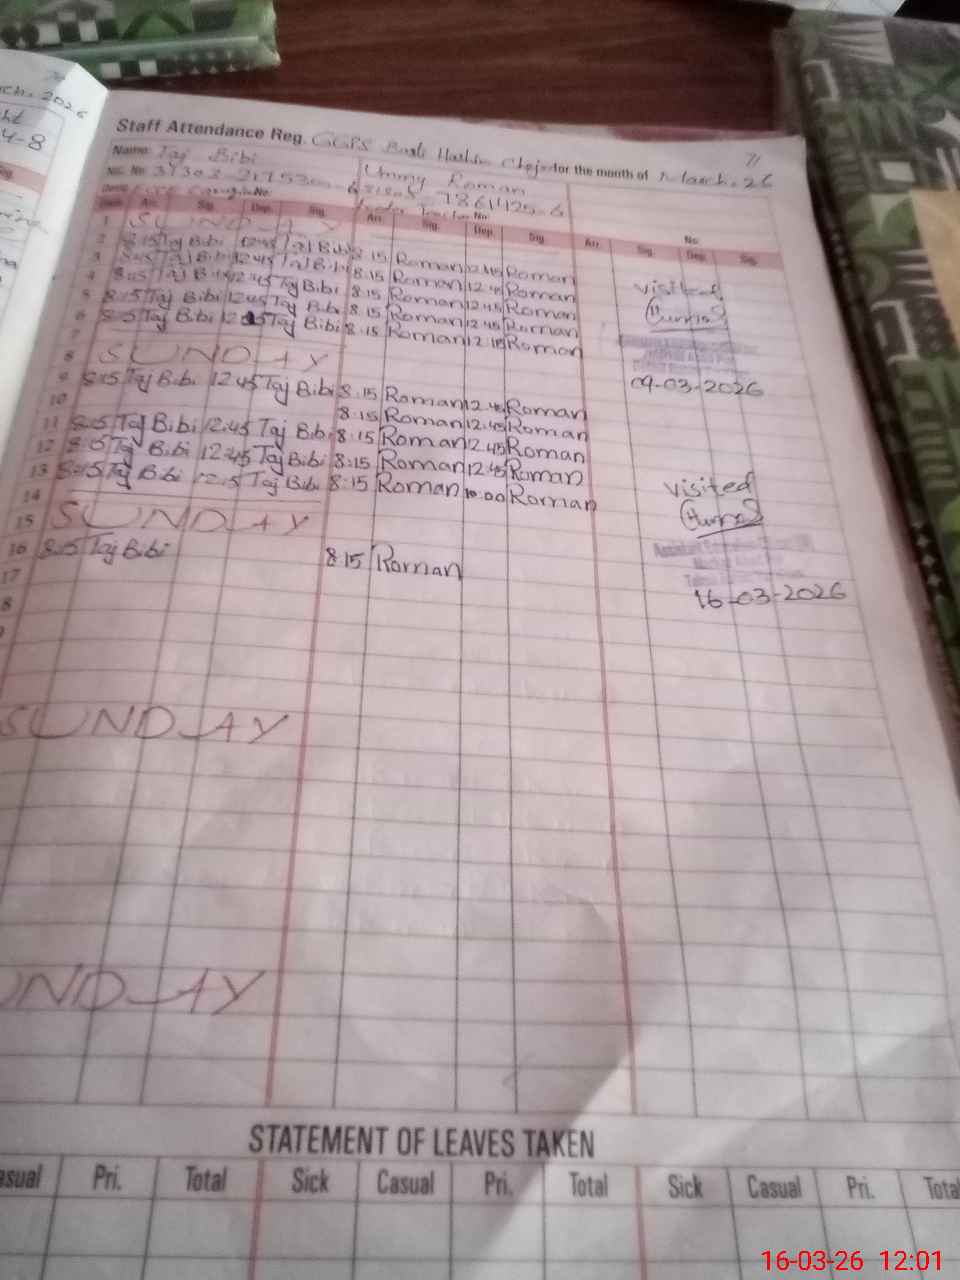 arch. 2026
4-8
Staff Attendance Reg. GGPS for the month of March. 26
71
Name: Taj Bibi
Ummy Roman
NIC. No.
7861425-6
No.
No
Arr. Sig. Dep. Sig. Arr. Sig. Dep. Sig. Arr. Sig. Dep. Sig.
1 SUNDAY
2 8:15 Taj Bibi 12:45 Taj Bibi 8:15 Roman 12:45 Roman
3 8:15 Taj Bibi 12:45 Taj Bibi 8:15 Roman 12:45 Roman
4 8:15 Taj Bibi 12:45 Taj Bibi 8:15 Roman 12:45 Roman
5 8:15 Taj Bibi 12:45 Taj Bibi 8:15 Roman 12:45 Roman
6 8:15 Taj Bibi Taj Bibi 8:15 Roman 12:15 Roman
visited
7
8 SUNDAY
9 8:15 Taj Bibi 12:45 Taj Bibi 8:15 Roman 12:45 Roman
09-03-2026
10 8:15 Roman 12:45 Roman
11 8:15 Taj Bibi 12:45 Taj Bibi 8:15 Roman 12:45 Roman
12 8:15 Taj Bibi 12:45 Taj Bibi 8:15 Roman 12:45 Roman
13 8:15 Taj Bibi Taj Bibi 8:15 Roman 10:00 Roman
visited
14
15 SUNDAY
16 8:15 Taj Bibi 8:15 Roman
Assistant
16-03-2026
17
8
SUNDAY
UNDAY
STATEMENT OF LEAVES TAKEN
asual Pri. Total Sick Casual Pri. Total Sick Casual Pri. Total
16-03-26 12:01